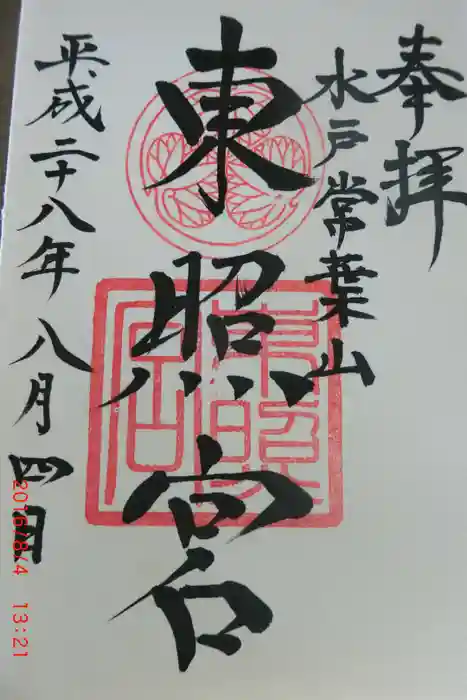 奉拝
水戸常葉山
東照宮
平成二十八年八月四日
東照宮
2016/8/4 13:21